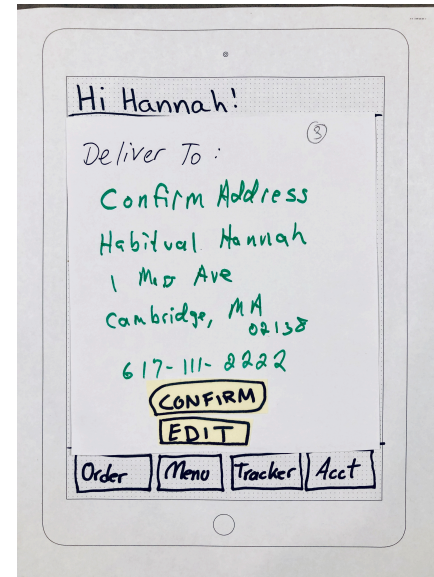 Hi Hannah!
3
Deliver To:
Confirm Address
Habitual Hannah
1 Ave
Cambridge, MA
02138
617-111-2222
CONFIRM
EDIT
Order Menu Tracker Acct